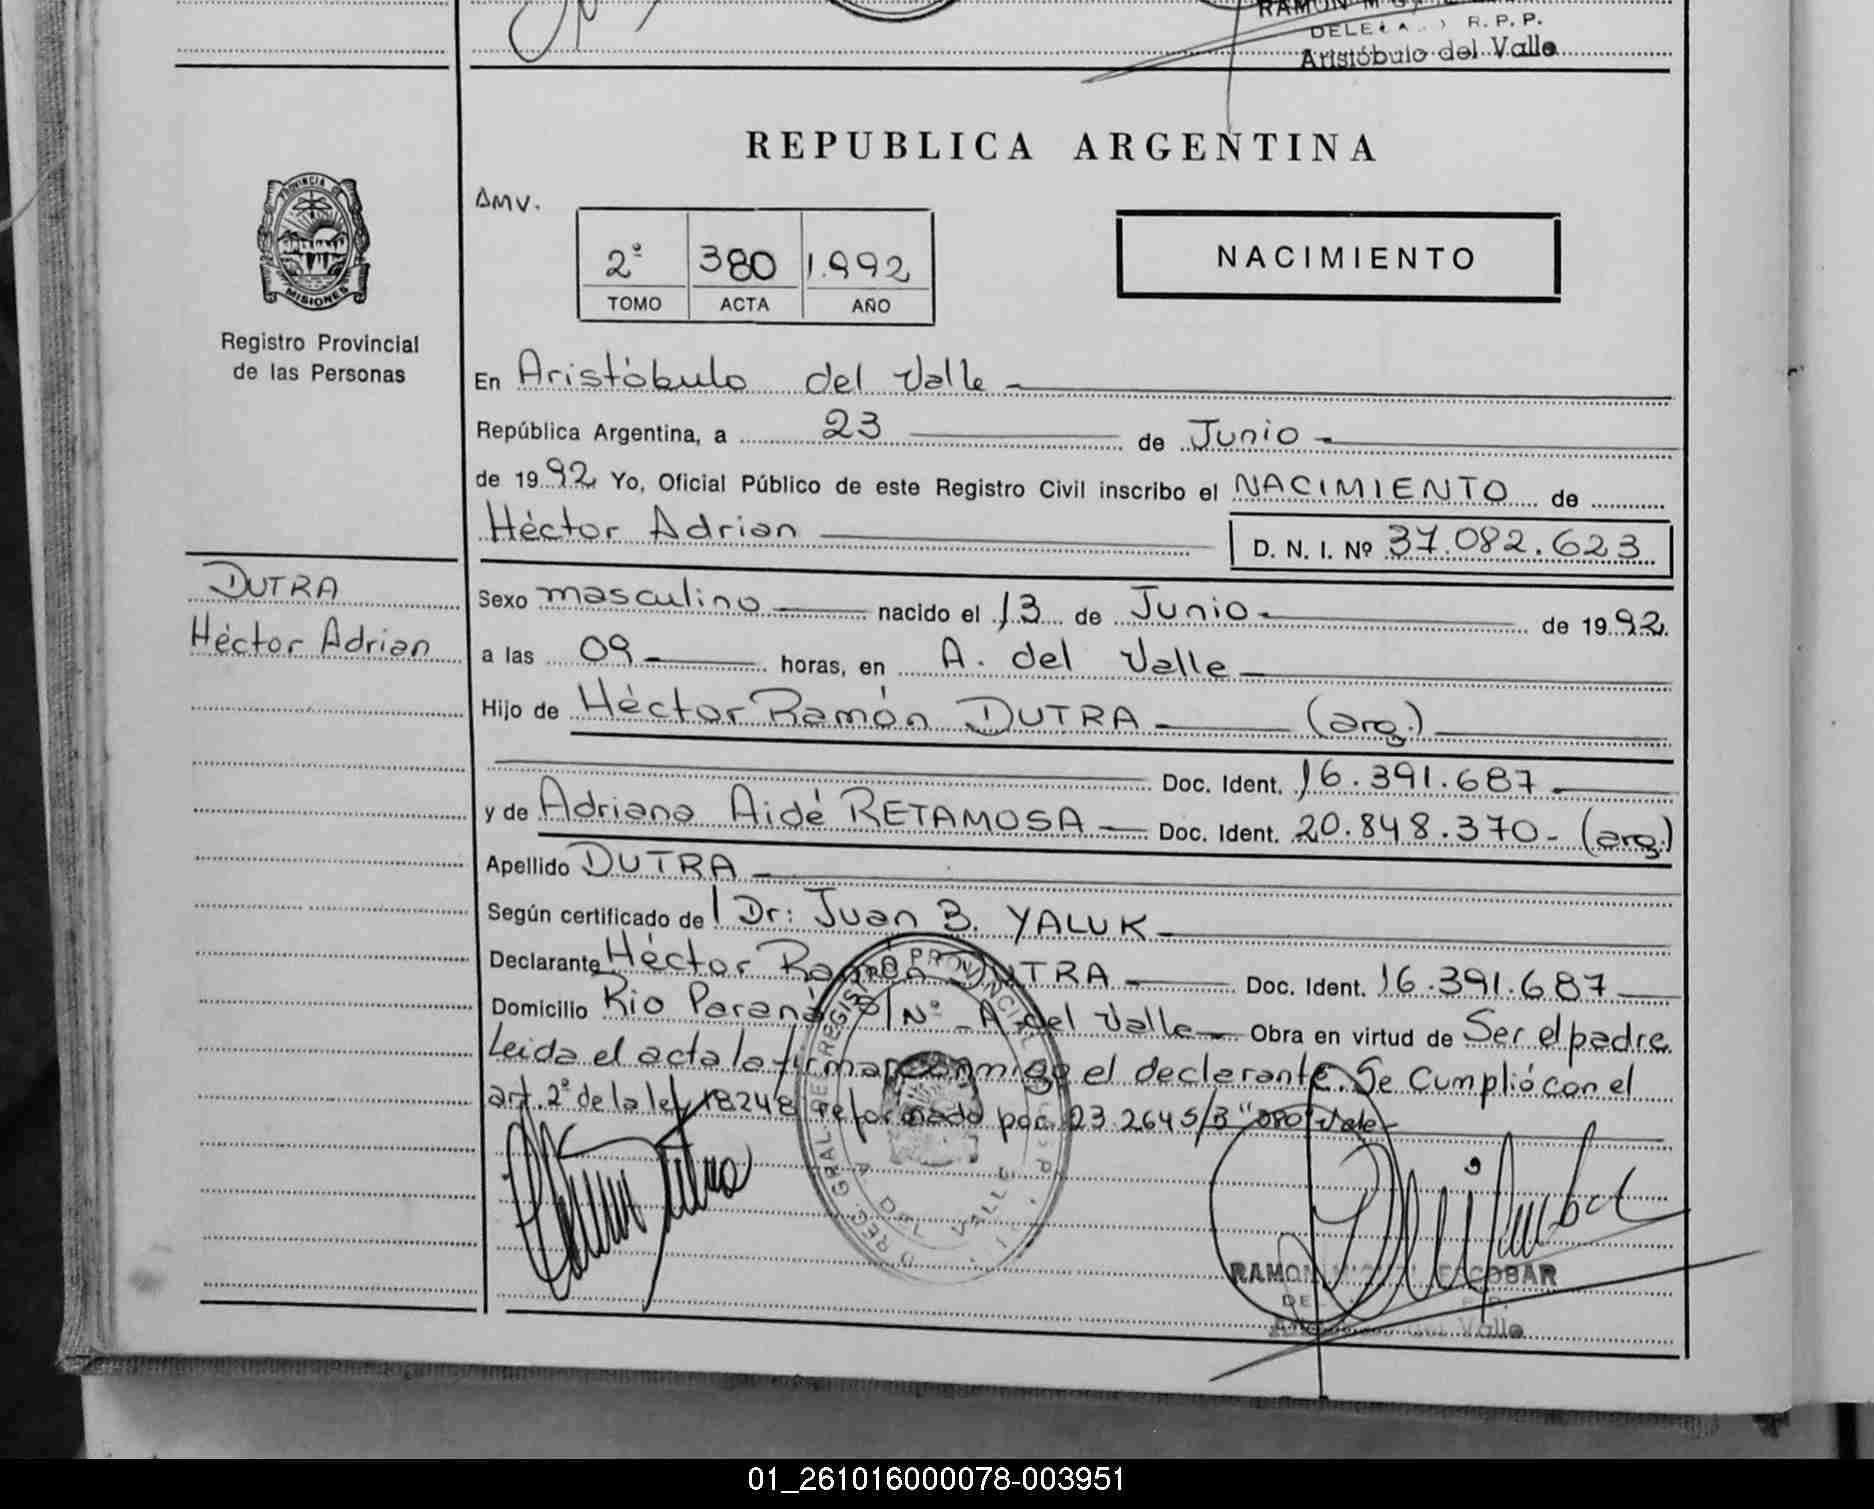 RAMON M
DELE R. P. P.
Aristóbulo del Valle
REPUBLICA ARGENTINA
AMV.
PROVINCIA DE
MISIONES
Registro Provincial
de las Personas
2º 380 1.992
TOMO ACTA AÑO
NACIMIENTO
En Aristóbulo del Valle
República Argentina, a 23 de Junio
de 1992 Yo, Oficial Público de este Registro Civil inscribo el NACIMIENTO de
Héctor Adrian D. N. I. Nº 37.082.623
DUTRA
Héctor Adrian
Sexo masculino nacido el 13 de Junio de 1992
a las 09 horas, en A. del Valle
Hijo de Héctor Ramón DUTRA (arg.)
Doc. Ident. 16.391.687
y de Adriana Aidé RETAMOSA Doc. Ident. 20.848.370 - (arg.)
Apellido DUTRA
Según certificado de Dr: Juan B. YALUK
Declarante Héctor Ramón DUTRA Doc. Ident. 16.391.687
Domicilio Rio Paraná S/Nº - A. del Valle Obra en virtud de Ser el padre.
Leida el acta la firma conmigo el declarante. Se Cumplió con el
art. 2º de la ley 18248 reformado por 23.264 S/B "OPO" Vale
REGISTRO PROVINCIAL
A DEL VALLE
RAMON ESCOBAR
del Valle
01_261016000078-003951